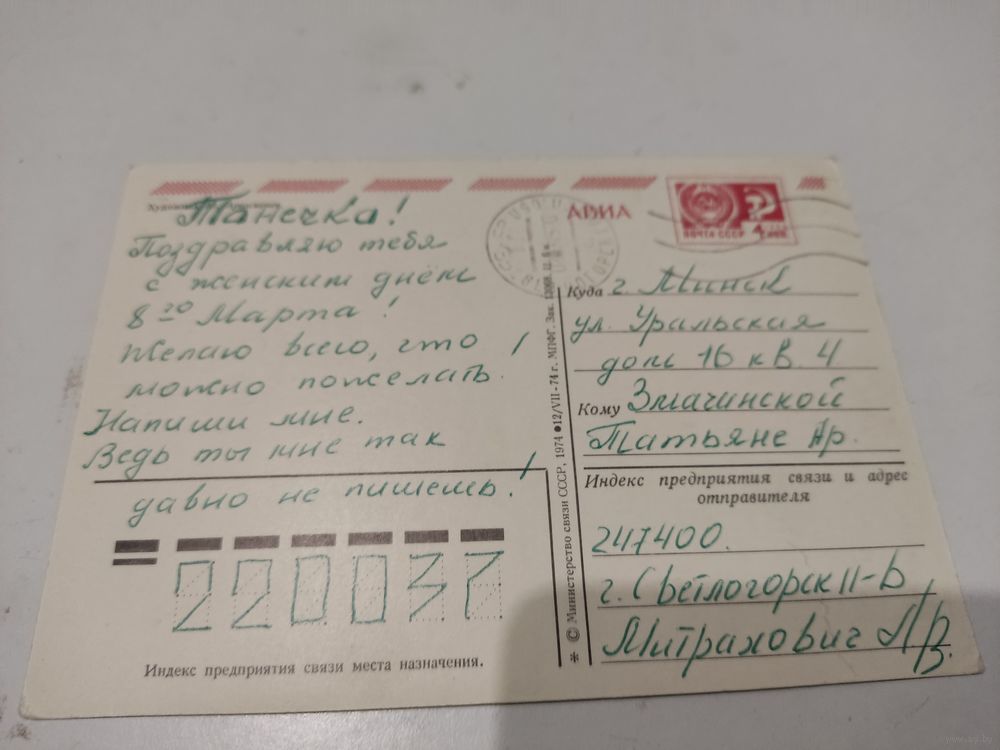 АВИА
ПОЧТА СССР 4 коп
Танечка!
Поздравляю тебя
с женским днём
8го Марта!
Желаю всего, что
можно пожелать!
Напиши мне.
Ведь ты мне так
давно не пишешь!
220037
Индекс предприятия связи места назначения.
* © Министерство связи СССР, 1974 ● 12/VII-74 г. МПФГ. Зак.
Куда г. Минск
ул. Уральская
дом 16 кв. 4
Кому Змачинской
Татьяне Ар.
Индекс предприятия связи и адрес
отправителя
247400.
г. Светлогорск 11-В
Митрахович Л.В.